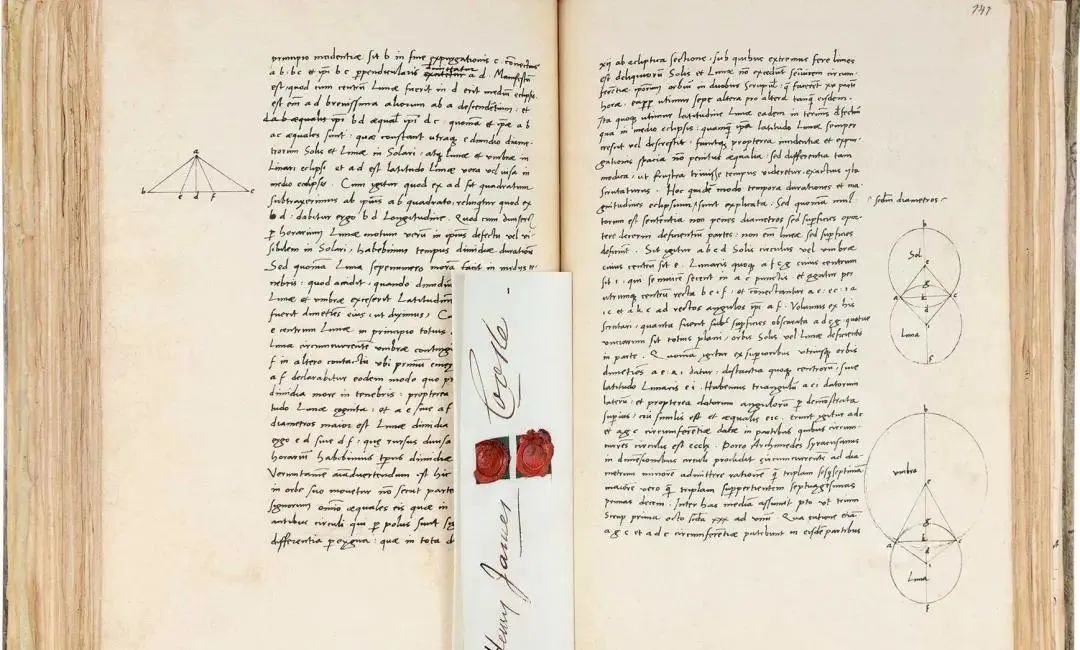 principio incidentiæ sit b in fine expurgationis c. cõnectantur
a b: bc et ipsi b c perpendicularis a d. Manifestũ
est quod cum centrũ Lunæ fuerit in d erit mediũ eclipsis.
est em̃ a d brevissima aliarum ab a descendentium: et
bd æqualis ipsi d c. quoniã et ipsæ a b
a c æquales sunt: quæ constant utraque e dimidio diame-
trorum Solis et Lunæ in Solari: atque Lunæ et umbræ in
Lunari eclipsi et a d est latitudo Lunæ vera vel visa in
medio eclipsis. Cum igitur quod ex a d fit quadratum
subtraxerimus ab ipsius a b quadrato: relinquitur quod ex
b d: dabitur ergo b d Longitudine. Quod cum
horarium Lunæ motum verũ in ipsius defectu vel vi-
sibilem in Solari: habebimus tempus dimidiæ durationis
Sed quoniã Luna sepenumero morã facit in medijs
nebris: quod accidit, quando dimidiũ
Lunæ et umbræ excesserit Latitudinem
fuerit dimetiens eius, ut diximus:
e centrum Lunæ in principio totius
Luna circumcurrentẽ umbræ
f in altero contactu ubi primũ
a f declarabitur eodem modo quo
dimidia more in tenebris: propterea
tudo Lunæ cognita: et a e sive a f
diametros maior est Lunæ dimidia
ergo e d sive d f: quæ rursus divisa
horarũ habebimus tempus dimidiæ
Verumtamen animadvertendum est hic
in orbe suo movetur nõ secat partes
signorum omnino æquales eis quæ in
antibus circuli qui per polos sunt
differentia perexigua: quæ in tota
a
b
c
e d f
1
Cooke
Henry James
141
xij ab ecliptica sectione, sub quibus extremus fere limes
est deliquiorũ Solis et Lunæ nõ excedunt seinvicem circum-
ferentiæ ipsorum orbium in duobus scrupulis: quæ facerent xv partẽ
horæ. eapropter utimur sepe altera pro altera tanquam eisdem.
Ita quoque utimur latitudine Lunæ eadem in terminis defectus
qua in medio eclipsis: quamquam ipsa latitudo Lunæ semper
crescat vel descrescat: fiuntque propterea incidentiæ et expur-
gationis spacia nõ penitus æqualia: sed differentia tam
modica, ut frustra trivisse tempus videretur, exactius ista
scrutaturus. Hoc quidẽ modo tempora durationes et ma-
gnitudines eclipsium sunt explicata. Sed quoniã mul-
torum est sententia non penes diametros sed superficies opor-
tere decerni deficientiũ partes: non em̃ lineæ sed superficies
deficiunt. Sit igitur a b c d Solis circulus vel umbræ
cuius centrũ sit e. Lunaris quoque a f c g cuius centrum
sit i: qui se invicẽ secent in a c punctis et agatur per
utrumque centrũ recta b e i f: et cõnectantur a e: e c: i a
i c et a k c ad rectos angulos ipsi b f. Volumus ex his
scrutari: quanta fuerit superficies obscurata a d c g: quotve
unciarum sit totius plani, orbis Solis vel Lunæ deficientis
in parte. Quoniã igitur ex superioribus utriusque orbis
dimetiens a e: a i datur: distantia quoque centrorũ, sive
latitudo Lunaris e i. Habemus triangulũ a e i datorum
laterũ: et propterea datorum angulorũ per demõstrata
superius, cui similis est et æqualis e i c. Erunt igitur ade
et a g c circumferentiæ datæ in partibus quibus circum-
currẽs circulus est ccclx. Porro Archimedes Syracusanus
in dimensionibus circuli prodidit circumcurrentẽ ad dia-
metrum minorẽ admittere rationẽ quam triplam sesquiseptimã
maiorẽ vero quam triplam suppertientem septuagesimas
primas decem. Inter has mediã assumit pto ut trium
scrup prima octo secũda xxx ad unũ. Qua ratione etiã
a g c et a d c circumferentiæ patebunt in eisdẽ partibus
secundũ diametros
b
Sol
e
g
a
k
c
d
i
Luna
f
b
umbra
e
g
a
k
c
d
i
Luna
f